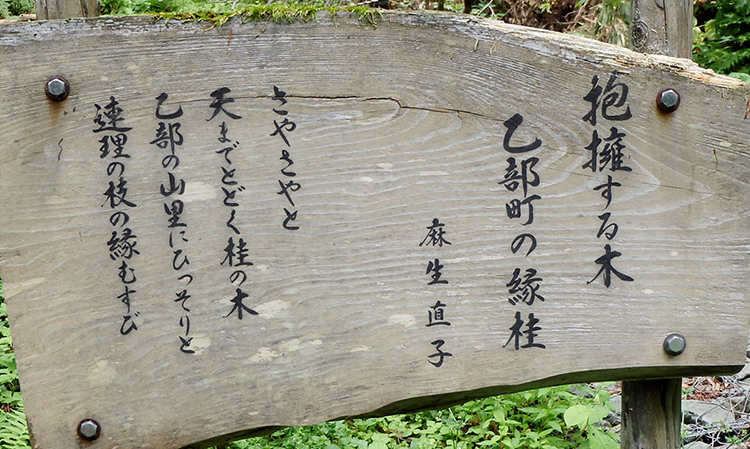 抱擁する木
乙部町の縁桂
麻生直子
さやさやと
天までとどく桂の木
乙部の山里にひっそりと
連理の枝の縁むすび